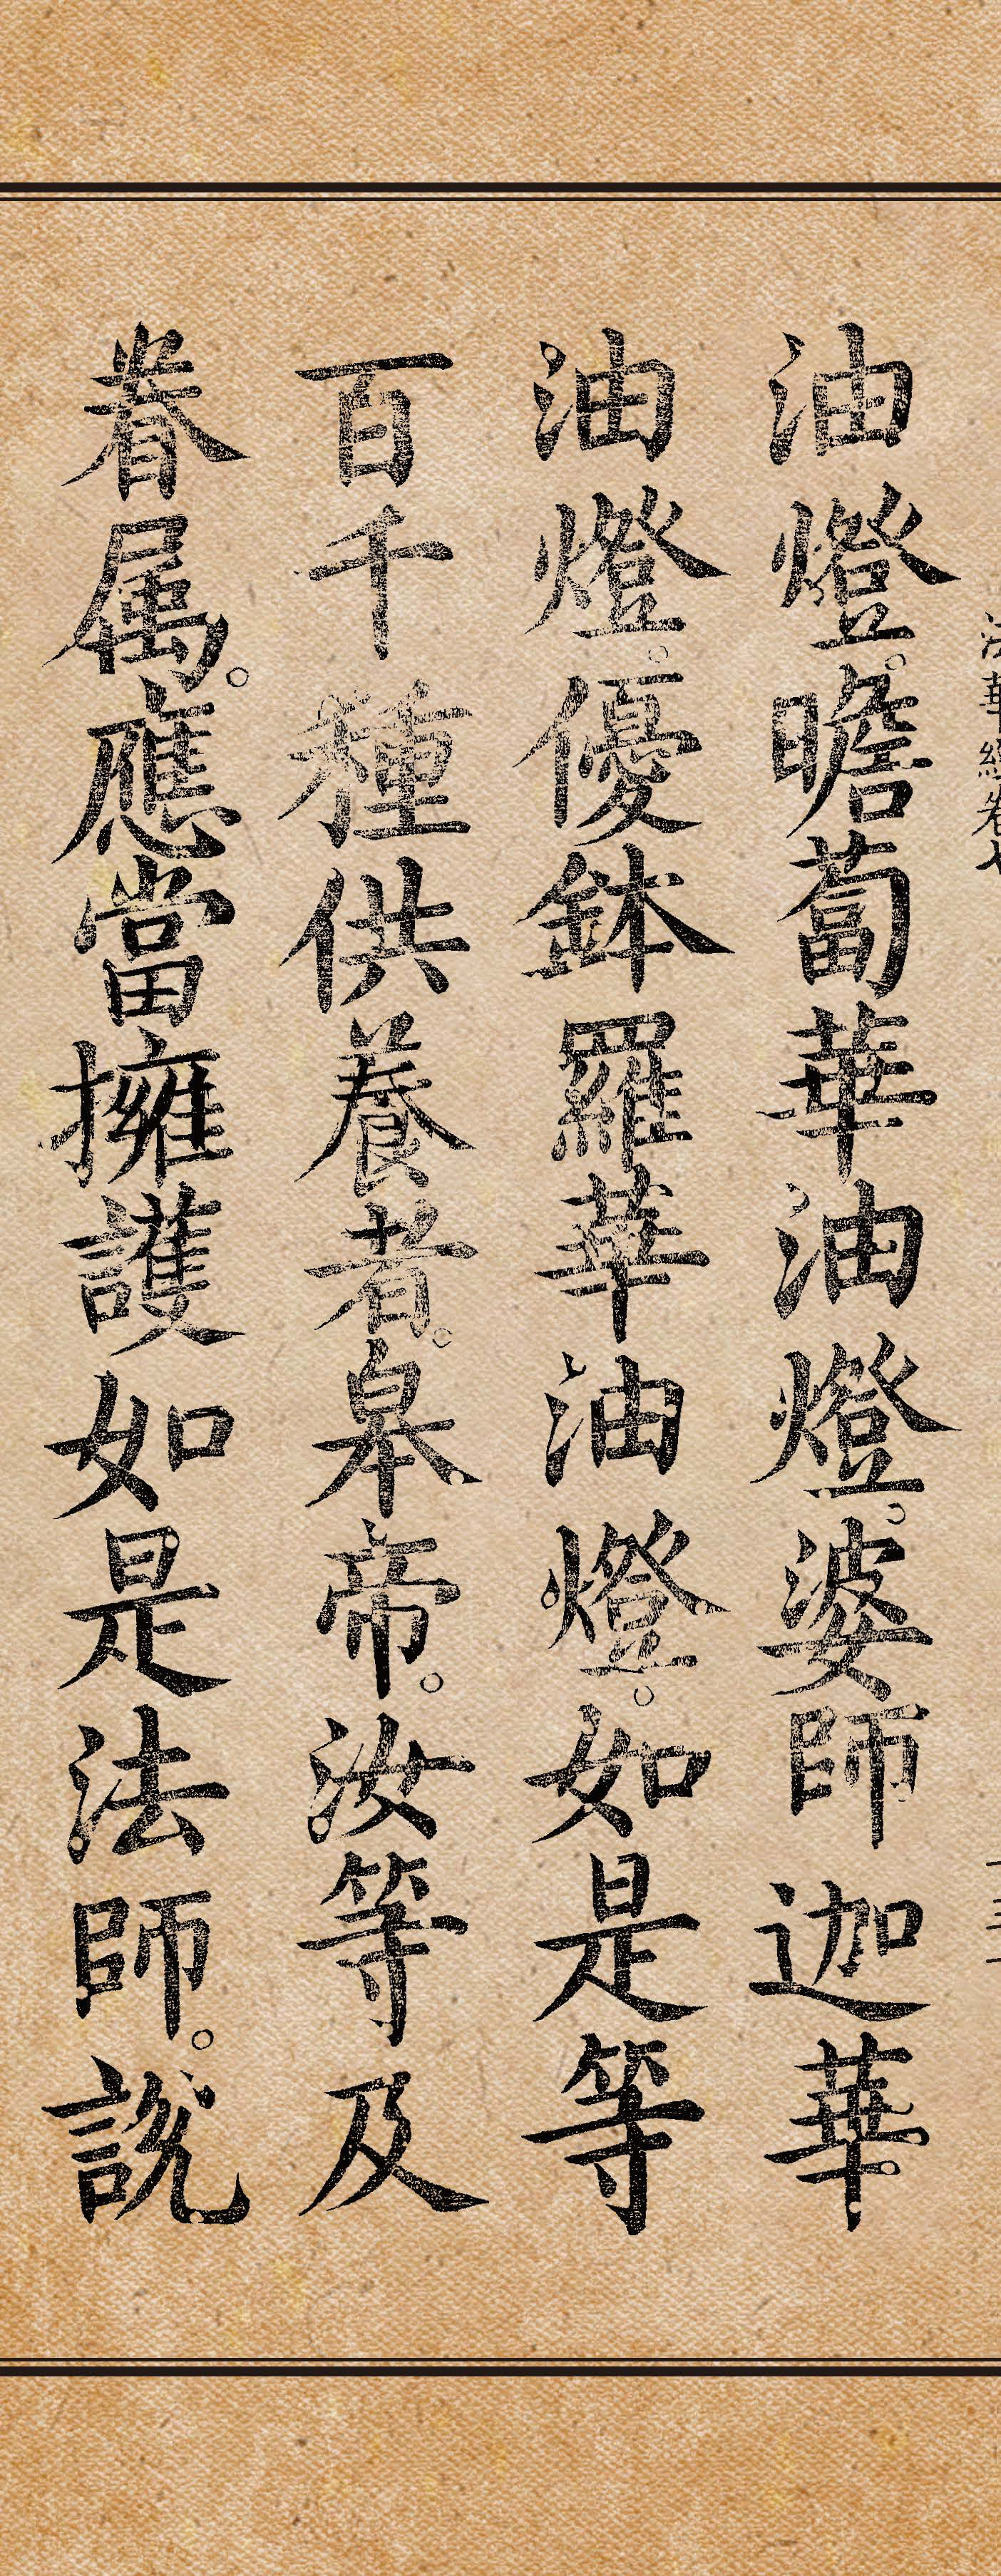 法華經卷七
油燈。瞻蔔華油燈。婆師迦華
油燈。優鉢羅華油燈。如是等
百千種供養者。皋帝。汝等及
眷属。應當擁護如是法師。說